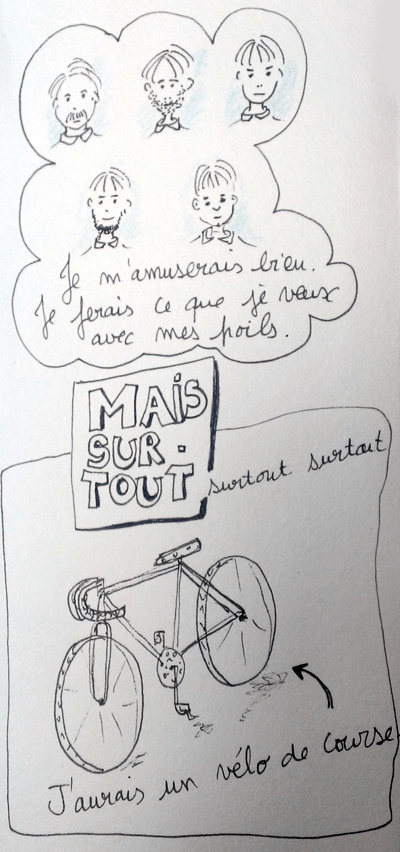 Je m'amuserais bien.
Je ferais ce que je veux
avec mes poils.
MAIS
SUR.
TOUT
surtout surtout
J'aurais un vélo de course